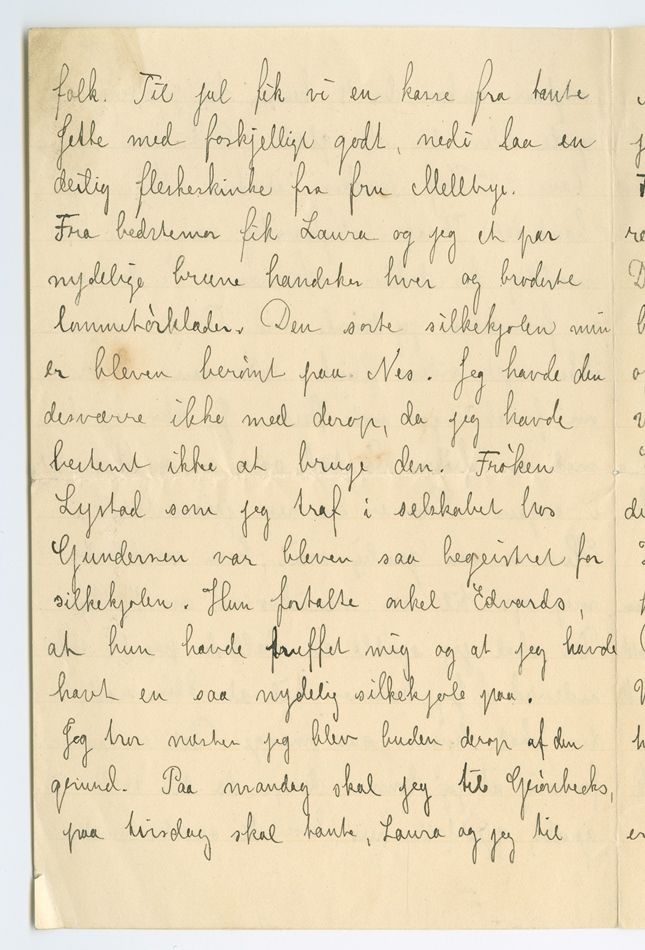 folk. Til jul fik vi en kasse fra tante
Jette med forskjelligt godt, nedi laa en
deilig fleskeskinke fra fru Mellbye.
Fra bedstemor fik Laura og jeg et par
nydelige brune handsker hver og broderte
lommetörklæder. Den sorte silkekjolen min
er bleven berömt paa Nes. Jeg havde den
desværre ikke med derop, da jeg havde
bestemt ikke at bruge den. Fröken
Lystad som jeg traf i selskabet hos
Gundersen var bleven saa begeistret for
silkekjolen. Hun fortalte onkel Edvards,
at hun havde truffet mig og at jeg havde
havt en saa nydelig silkekjole paa.
Jeg tror næsten jeg blev buden derop af den
grund. Paa mandag skal jeg til Grönbecks,
paa tirsdag skal tante, Laura og jeg til